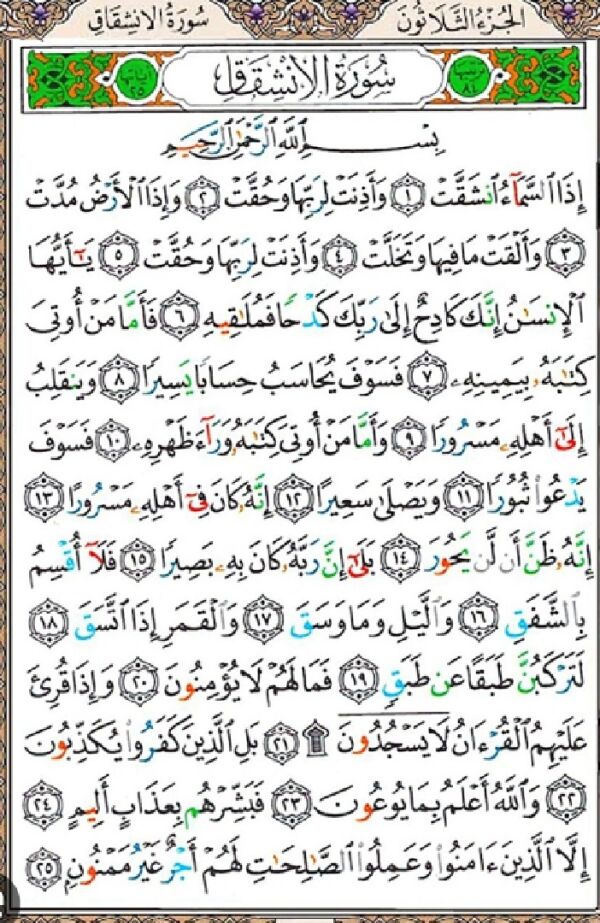 سُورَةُ الِانْشِقَاقِ الجُزْءُ الثَّلَاثُونَ
آياتها ٢٥ سُورَةُ الِانْشِقَاقِ ترتيبها ٨٤
بِسْمِ اللَّهِ الرَّحْمَٰنِ الرَّحِيمِ
إِذَا السَّمَاءُ انشَقَّتْ ١ وَأَذِنَتْ لِرَبِّهَا وَحُقَّتْ ٢ وَإِذَا الْأَرْضُ مُدَّتْ
٣ وَأَلْقَتْ مَا فِيهَا وَتَخَلَّتْ ٤ وَأَذِنَتْ لِرَبِّهَا وَحُقَّتْ ٥ يَٰأَيُّهَا
الْإِنسَٰنُ إِنَّكَ كَادِحٌ إِلَىٰ رَبِّكَ كَدْحًا فَمُلَٰقِيهِ ٦ فَأَمَّا مَنْ أُوتِيَ
كِتَٰبَهُۥ بِيَمِينِهِۦ ٧ فَسَوْفَ يُحَاسَبُ حِسَابًا يَسِيرًا ٨ وَيَنقَلِبُ
إِلَىٰ أَهْلِهِۦ مَسْرُورًا ٩ وَأَمَّا مَنْ أُوتِيَ كِتَٰبَهُۥ وَرَاءَ ظَهْرِهِۦ ١٠ فَسَوْفَ
يَدْعُوا ثُبُورًا ١١ وَيَصْلَىٰ سَعِيرًا ١٢ إِنَّهُۥ كَانَ فِي أَهْلِهِۦ مَسْرُورًا ١٣
إِنَّهُۥ ظَنَّ أَن لَّن يَحُورَ ١٤ بَلَىٰ إِنَّ رَبَّهُۥ كَانَ بِهِۦ بَصِيرًا ١٥ فَلَا أُقْسِمُ
بِالشَّفَقِ ١٦ وَالَّيْلِ وَمَا وَسَقَ ١٧ وَالْقَمَرِ إِذَا اتَّسَقَ ١٨
لَتَرْكَبُنَّ طَبَقًا عَن طَبَقٍ ١٩ فَمَا لَهُمْ لَا يُؤْمِنُونَ ٢٠ وَإِذَا قُرِئَ
عَلَيْهِمُ الْقُرْءَانُ لَا يَسْجُدُونَ ۩ ٢١ بَلِ الَّذِينَ كَفَرُوا يُكَذِّبُونَ
٢٢ وَاللَّهُ أَعْلَمُ بِمَا يُوعُونَ ٢٣ فَبَشِّرْهُم بِعَذَابٍ أَلِيمٍ ٢٤
إِلَّا الَّذِينَ ءَامَنُوا وَعَمِلُوا الصَّٰلِحَٰتِ لَهُمْ أَجْرٌ غَيْرُ مَمْنُونٍ ٢٥